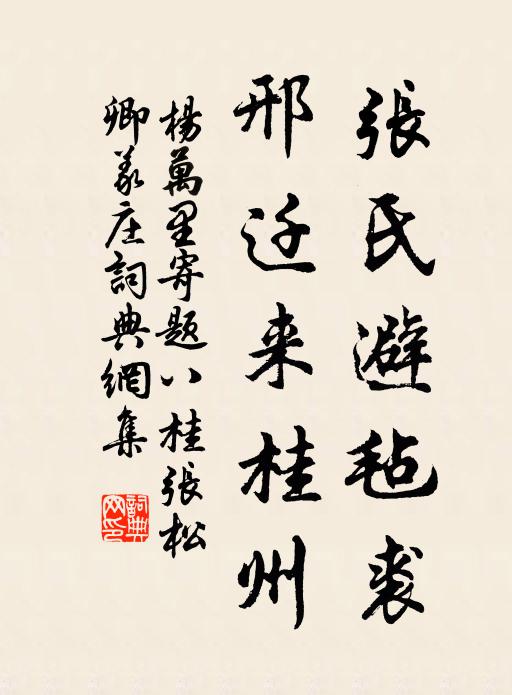 張氏避毡裘
邢迁来桂州
楊萬里寄題八桂張松
卿義庄詞典網集
詞典
网印